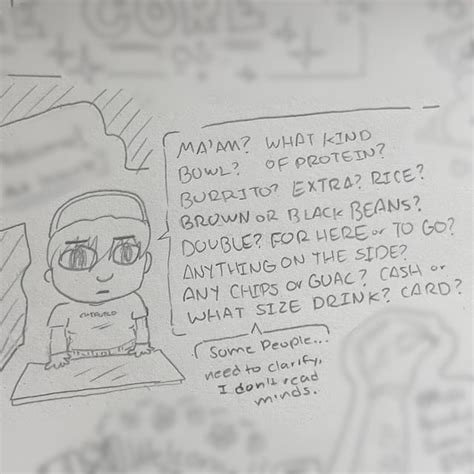 CORE
MA'AM? WHAT KIND
BOWL? OF PROTEIN?
BURRITO? EXTRA? RICE?
BROWN OR BLACK BEANS?
DOUBLE? FOR HERE OR TO GO?
ANYTHING ON THE SIDE?
ANY CHIPS OR GUAC? CASH OR
WHAT SIZE DRINK? CARD?
Some People...
need to clarify,
I don't read
minds.